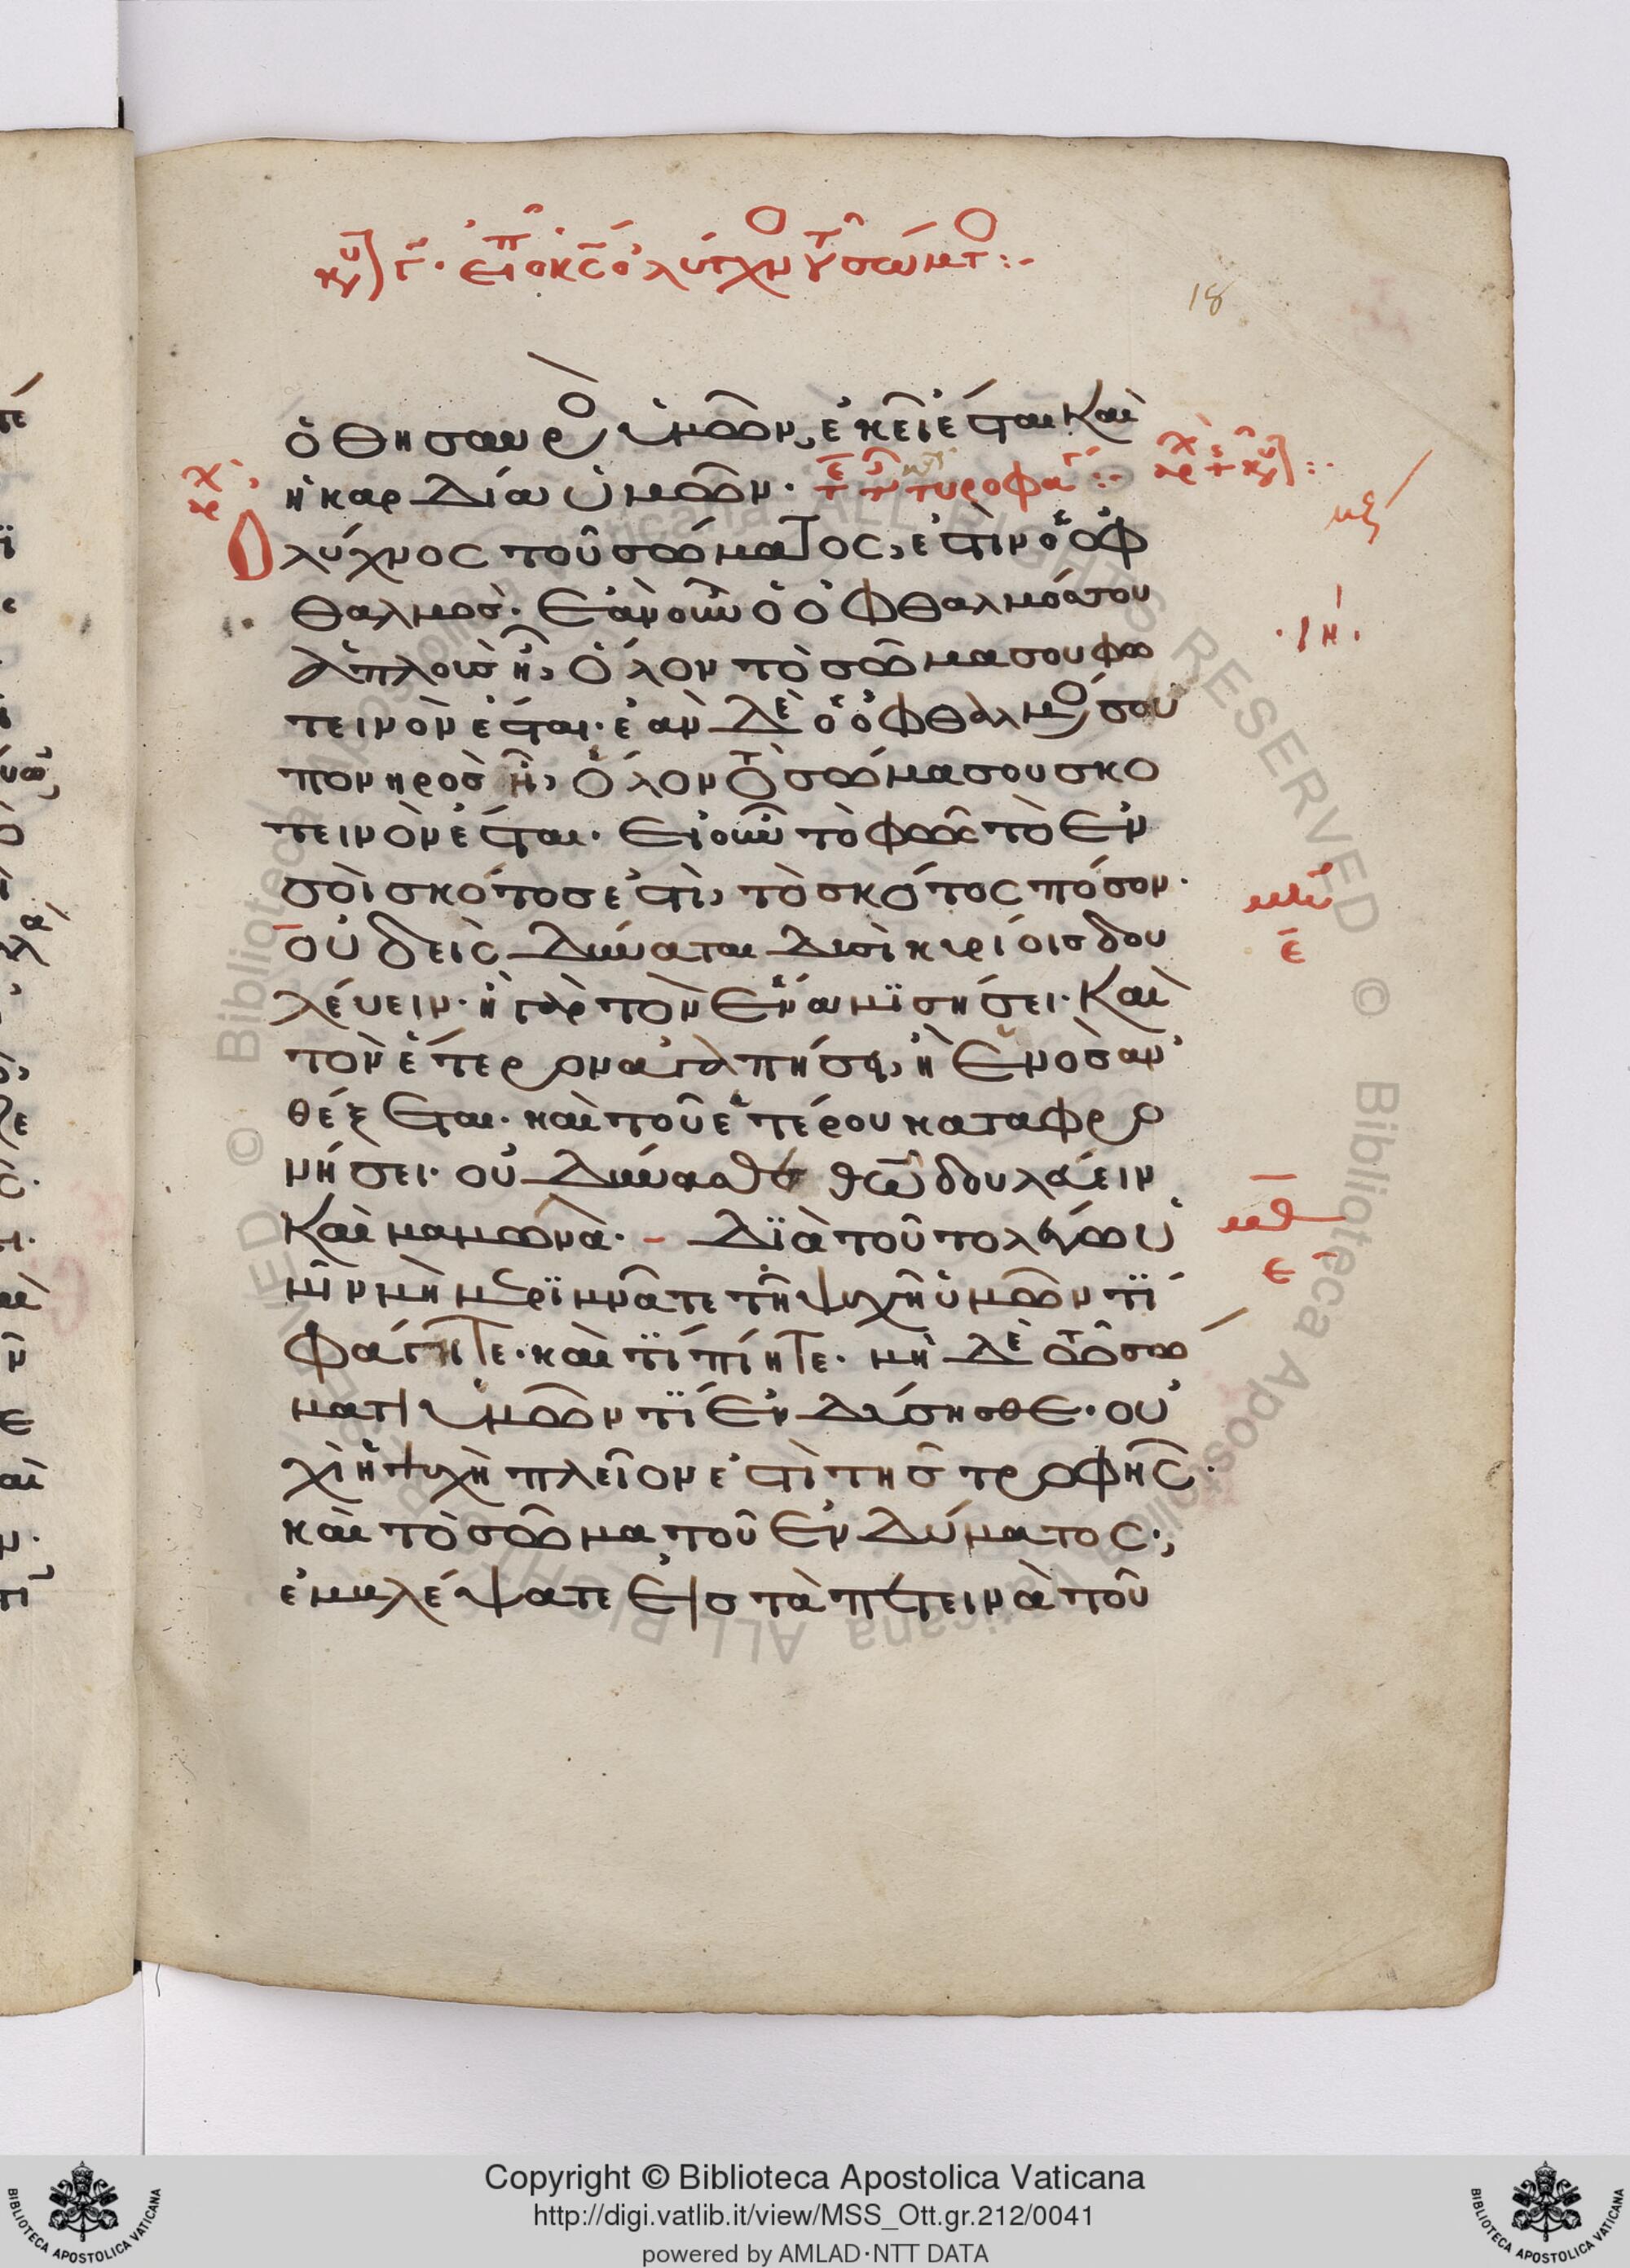 18
ὁ θησαυρὸς ὑμῶν, ἐκεῖ ἔσται καὶ
ἡ καρδία ὑμῶν. τυροφά
λύχνος τοῦ σώματος, ἐστιν ὁ ὀφ
θαλμοσ. Ἐὰν οὖν ὁ ὀφθαλμόσ σου
ἁπλοῦσ ἦ, ὅλον τὸ σῶμα σου φω
τεινὸν ἔσται. ἐὰν δὲ ὁ ὀφθαλμός σου
πονηροσ ἦ, ὅλον τὸ σῶμα σου σκο
τεινὸν ἔσται. Εἰ οὖν τὸ φῶς τὸ ἐν
σοὶ σκότοσ ἐστὶ, τὸ σκότος πόσον.
οὐδεὶς δύναται δυσὶ κυρίοισ δου
λέυειν. ἢ γὰρ τὸν ἕνα μϊσήσει. καὶ
τὸν ἕτερον ἀγαπήσει, ἢ ἑνὸσ ἀν
θέξεται. καὶ τοῦ ἑτέρου καταφρο
νήσει. οὐ δύνασθε θῶ δουλεύειν
καὶ μαμωνὰ. - Δϊὰ τοῦτο λέγω ὑ
μῖν μὴ μερϊμνᾶτε τῆ ψυχῆ ὑμῶν τϊ
φάγητε. καὶ τϊ πίητε. μὴ δὲ τῶ σώ
ματι ὑμῶν τϊ ἐνδύσησθε. οὐ
χὶ ἡ ψυχὴ πλεῖον ἐστὶ τῆσ τροφῆς.
καὶ τὸ σῶμα τοῦ ἐνδύματος·,
ἐμβλέψατε εἰσ τὰ πετεινὰ τοῦ
Copyright © Biblioteca Apostolica Vaticana
http://digi.vatlib.it/view/MSS_Ott.gr.212/0041
powered by AMLAD·NTT DATA
BIBLIOTECA APOSTOLICA VATICANA
BIBLIOTECA APOSTOLICA VATICANA